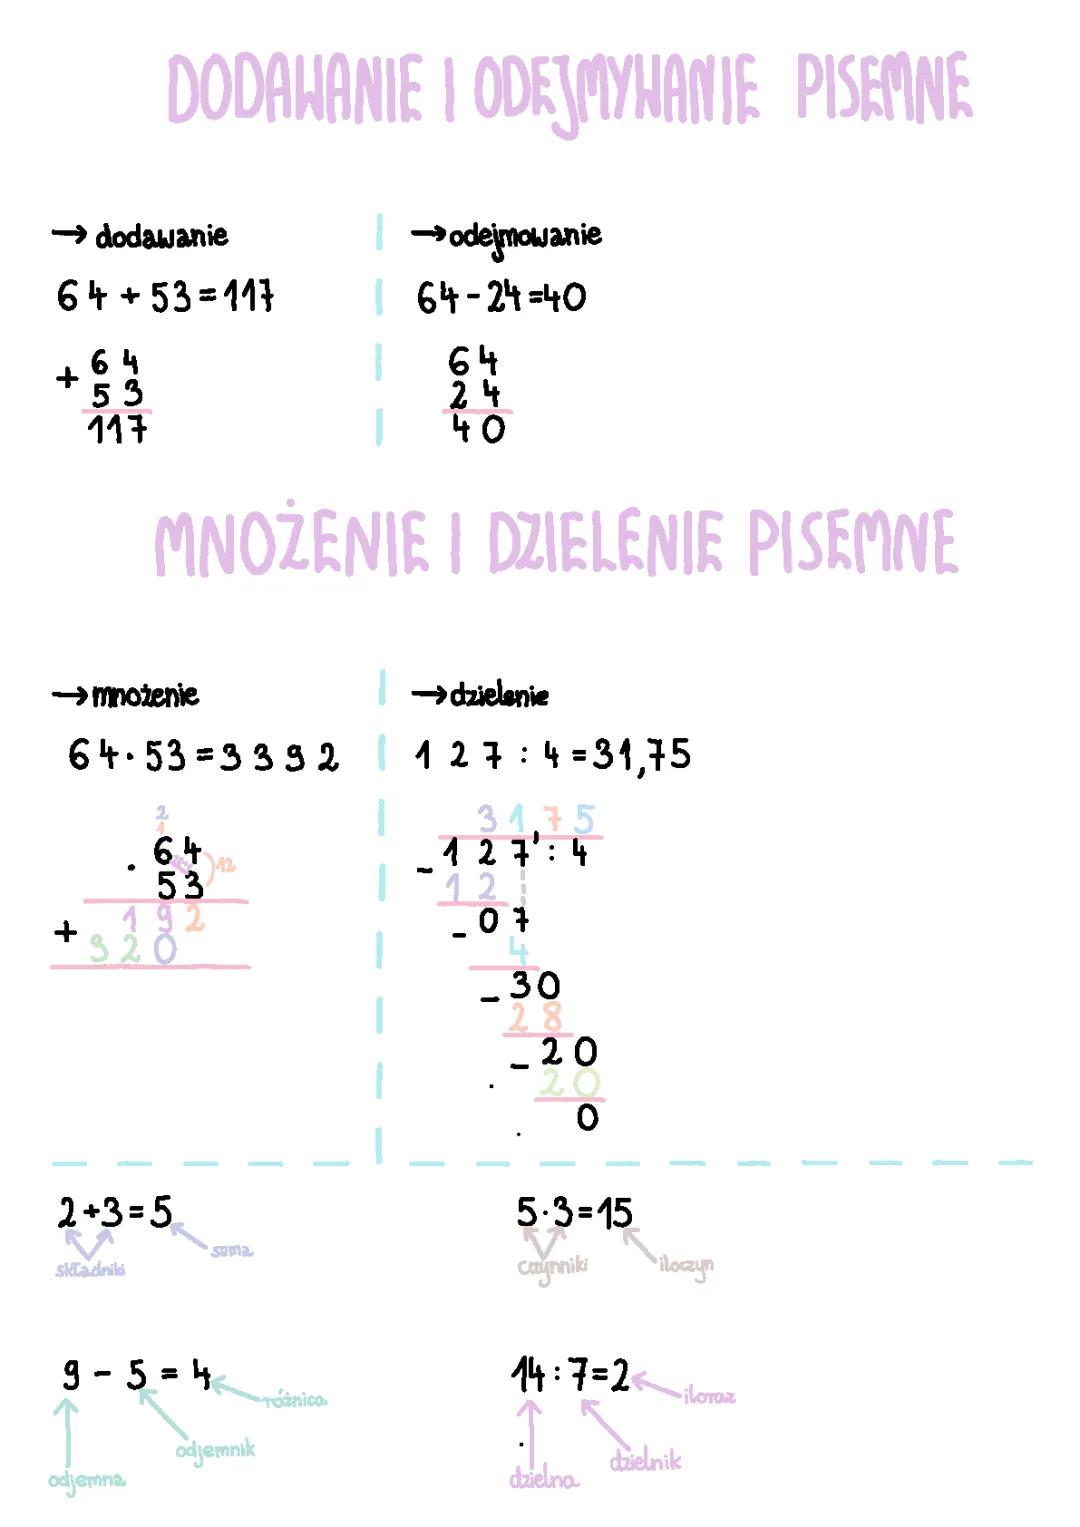 DODAWANIE I ODEJMYWANIE PISEMNE
→ dodawanie
64 + 53 = 117
+ 64
53
117
→ odejmowanie
64 - 24 = 40
64
24
40
MNOŻENIE I DZIELENIE PISEMNE
→ mnożenie
64 · 53 = 3392
2
1
· 64
12
53
192
+ 320
→ dzielenie
127 : 4 = 31,75
3175
- 127' : 4
12
- 07
4
- 30
28
- 20
20
0
2+3=5
składniki
suma
5·3=15
czynniki
iloczyn
9 - 5 = 4
różnica
odjemnik
odjemna
14:7=2
iloraz
dzielnik
dzielna